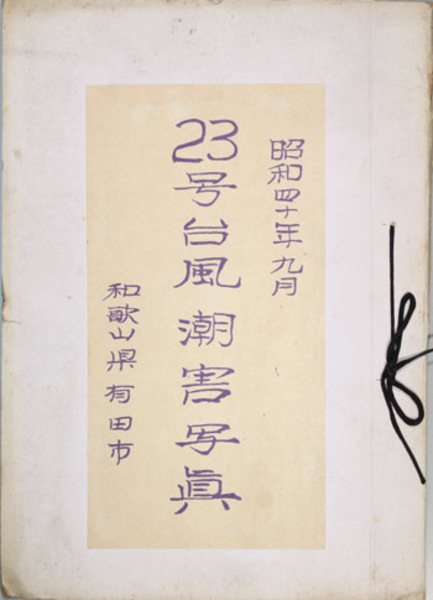 昭和四十年九月
23号台風潮害写眞
和歌山県有田市